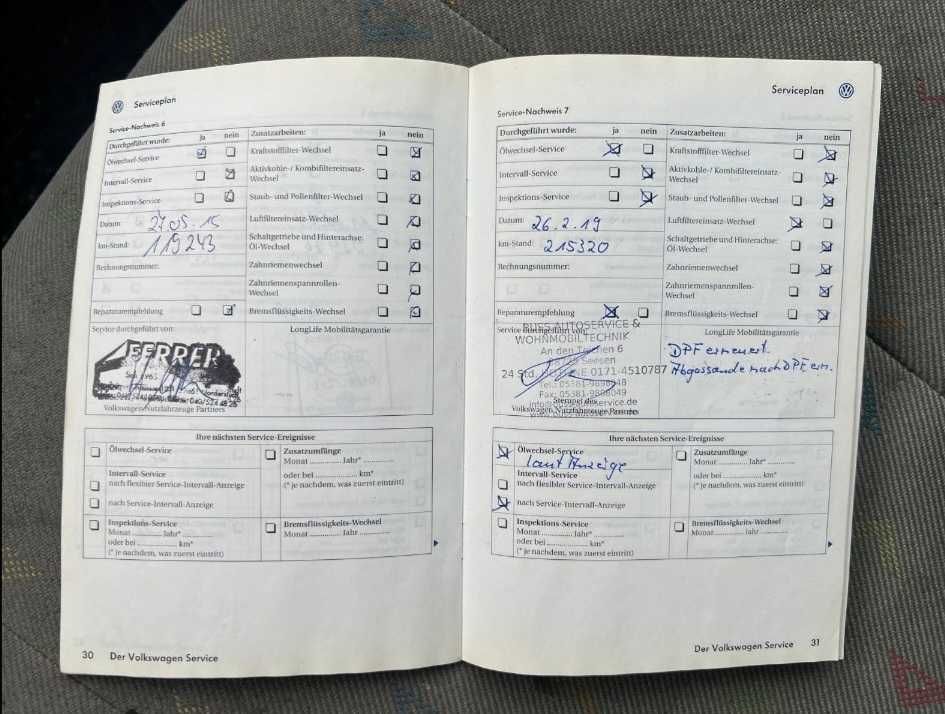 Serviceplan
Service-Nachweis 6
Durchgeführt wurde: ja nein Zusatzarbeiten: ja nein
Ölwechsel-Service Kraftstofffilter-Wechsel
Intervall-Service Aktivkohle-/ Kombifiltereinsatz-
Wechsel
Inspektions-Service Staub- und Pollenfilter-Wechsel
Datum: 27.05.15 Luftfiltereinsatz-Wechsel
km-Stand: 119243 Schaltgetriebe und Hinterachse:
Öl-Wechsel
Rechnungsnummer: Zahnriemenwechsel
Zahnriemenspannrollen-
Wechsel
Reparaturempfehlung Bremsflüssigkeits-Wechsel
Service durchgeführt von: LongLife Mobilitätsgarantie
FERRER
Volkswagen Nutzfahrzeuge Partners
Ihre nächsten Service-Ereignisse
Ölwechsel-Service Zusatzumfänge
Monat ............ Jahr* ............
Intervall-Service oder bei ............ km*
nach flexibler Service-Intervall-Anzeige (* je nachdem, was zuerst eintritt)
nach Service-Intervall-Anzeige
Inspektions-Service Bremsflüssigkeits-Wechsel
Monat ............ Jahr* Monat ............ Jahr*
oder bei ............ km*
(* je nachdem, was zuerst eintritt)
30 Der Volkswagen Service
Serviceplan
Service-Nachweis 7
Durchgeführt wurde: ja nein Zusatzarbeiten: ja nein
Ölwechsel-Service Kraftstofffilter-Wechsel
Intervall-Service Aktivkohle-/ Kombifiltereinsatz-
Wechsel
Inspektions-Service Staub- und Pollenfilter-Wechsel
Datum: 26.2.19 Luftfiltereinsatz-Wechsel
km-Stand: 215320 Schaltgetriebe und Hinterachse:
Öl-Wechsel
Rechnungsnummer: Zahnriemenwechsel
Zahnriemenspannrollen-
Wechsel
Reparaturempfehlung Bremsflüssigkeits-Wechsel
Service durchgeführt von: LongLife Mobilitätsgarantie
BUSS AUTOSERVICE &
WOHNMOBILTECHNIK
An den Teichen 6
Seesen
24 Std. 0171-4510787
Tel.: 05381-9898048
Fax: 05381-9888049
Stempel des
Volkswagen Nutzfahrzeuge Partners
DPF erneuert.
nach DPF ern.
Ihre nächsten Service-Ereignisse
Ölwechsel-Service Zusatzumfänge
laut Anzeige Monat ............ Jahr* ............
Intervall-Service oder bei ............ km*
nach flexibler Service-Intervall-Anzeige (* je nachdem, was zuerst eintritt)
nach Service-Intervall-Anzeige
Inspektions-Service Bremsflüssigkeits-Wechsel
Monat ............ Jahr* Monat ............ Jahr*
oder bei ............ km*
(* je nachdem, was zuerst eintritt)
Der Volkswagen Service 31